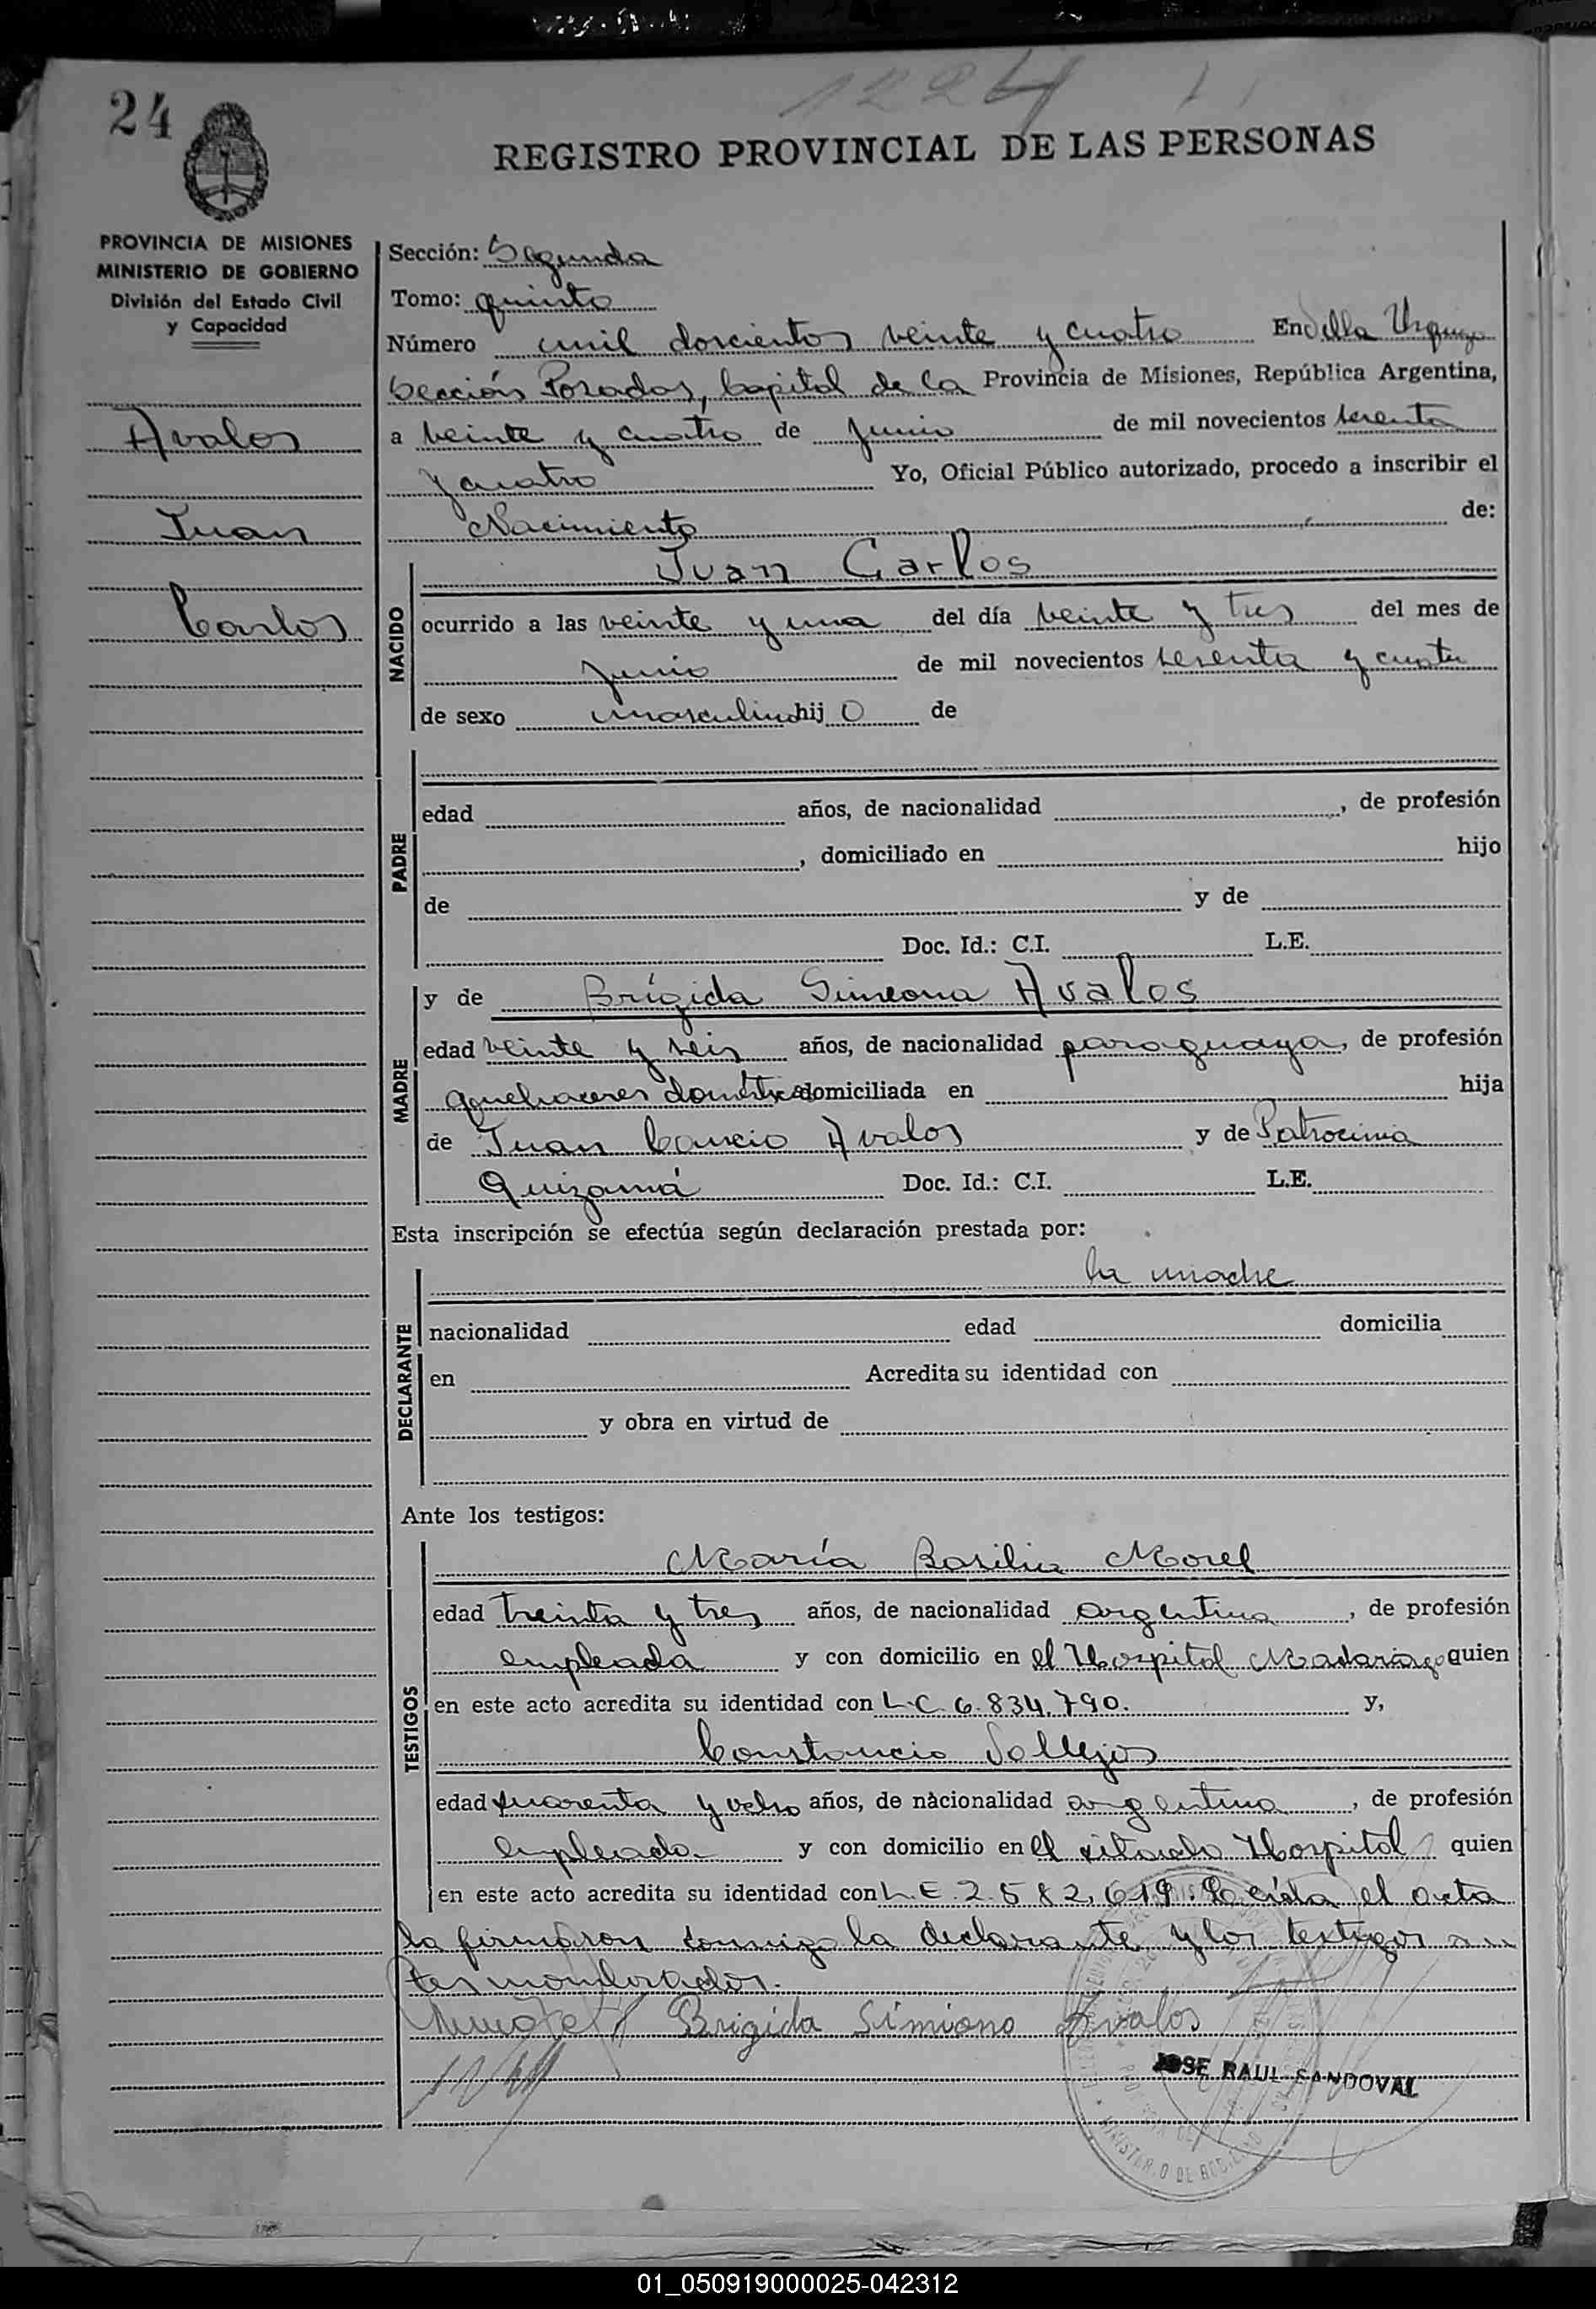 1224
24
REGISTRO PROVINCIAL DE LAS PERSONAS
PROVINCIA DE MISIONES
MINISTERIO DE GOBIERNO
División del Estado Civil
y Capacidad
Avalos
Juan
Carlos
Sección: Segunda
Tomo: quinto
Número mil doscientos veinte y cuatro En Villa Urquiza
Sección Posadas, Capital de la Provincia de Misiones, República Argentina,
a veinte y cuatro de junio de mil novecientos
y cuatro Yo, Oficial Público autorizado, procedo a inscribir el
Nacimiento de:
NACIDO
Juan Carlos
ocurrido a las veinte y una del día veinte y tres del mes de
junio de mil novecientos y cuatro
de sexo masculino hij o de
PADRE
edad años, de nacionalidad , de profesión
, domiciliado en hijo
de y de
Doc. Id.: C.I. L.E.
MADRE
y de Brígida Simeona Avalos
edad veinte y seis años, de nacionalidad paraguaya, de profesión
quehaceres domiciliada en hija
de Juan Avalos y de Patrocinia
Doc. Id.: C.I. L.E.
Esta inscripción se efectúa según declaración prestada por:
DECLARANTE
la madre
nacionalidad edad domicilia
en Acredita su identidad con
y obra en virtud de
Ante los testigos:
TESTIGOS
María Basilia Morel
edad treinta y tres años, de nacionalidad argentina, de profesión
empleada y con domicilio en el Hospital Madariaga quien
en este acto acredita su identidad con L.C. 6.834.790. y,
Constancio Vallejos
edad cuarenta y ocho años, de nacionalidad argentina, de profesión
empleado y con domicilio en el citado Hospital quien
en este acto acredita su identidad con L.E. 2.582.619. Leída el acta
la firmaron conmigo la declarante y los testigos an
tes nombrados.
Brigida Simiona Avalos
JOSE RAUL SANDOVAL
MINISTERIO DE GOBIERNO
01_050919000025-042312